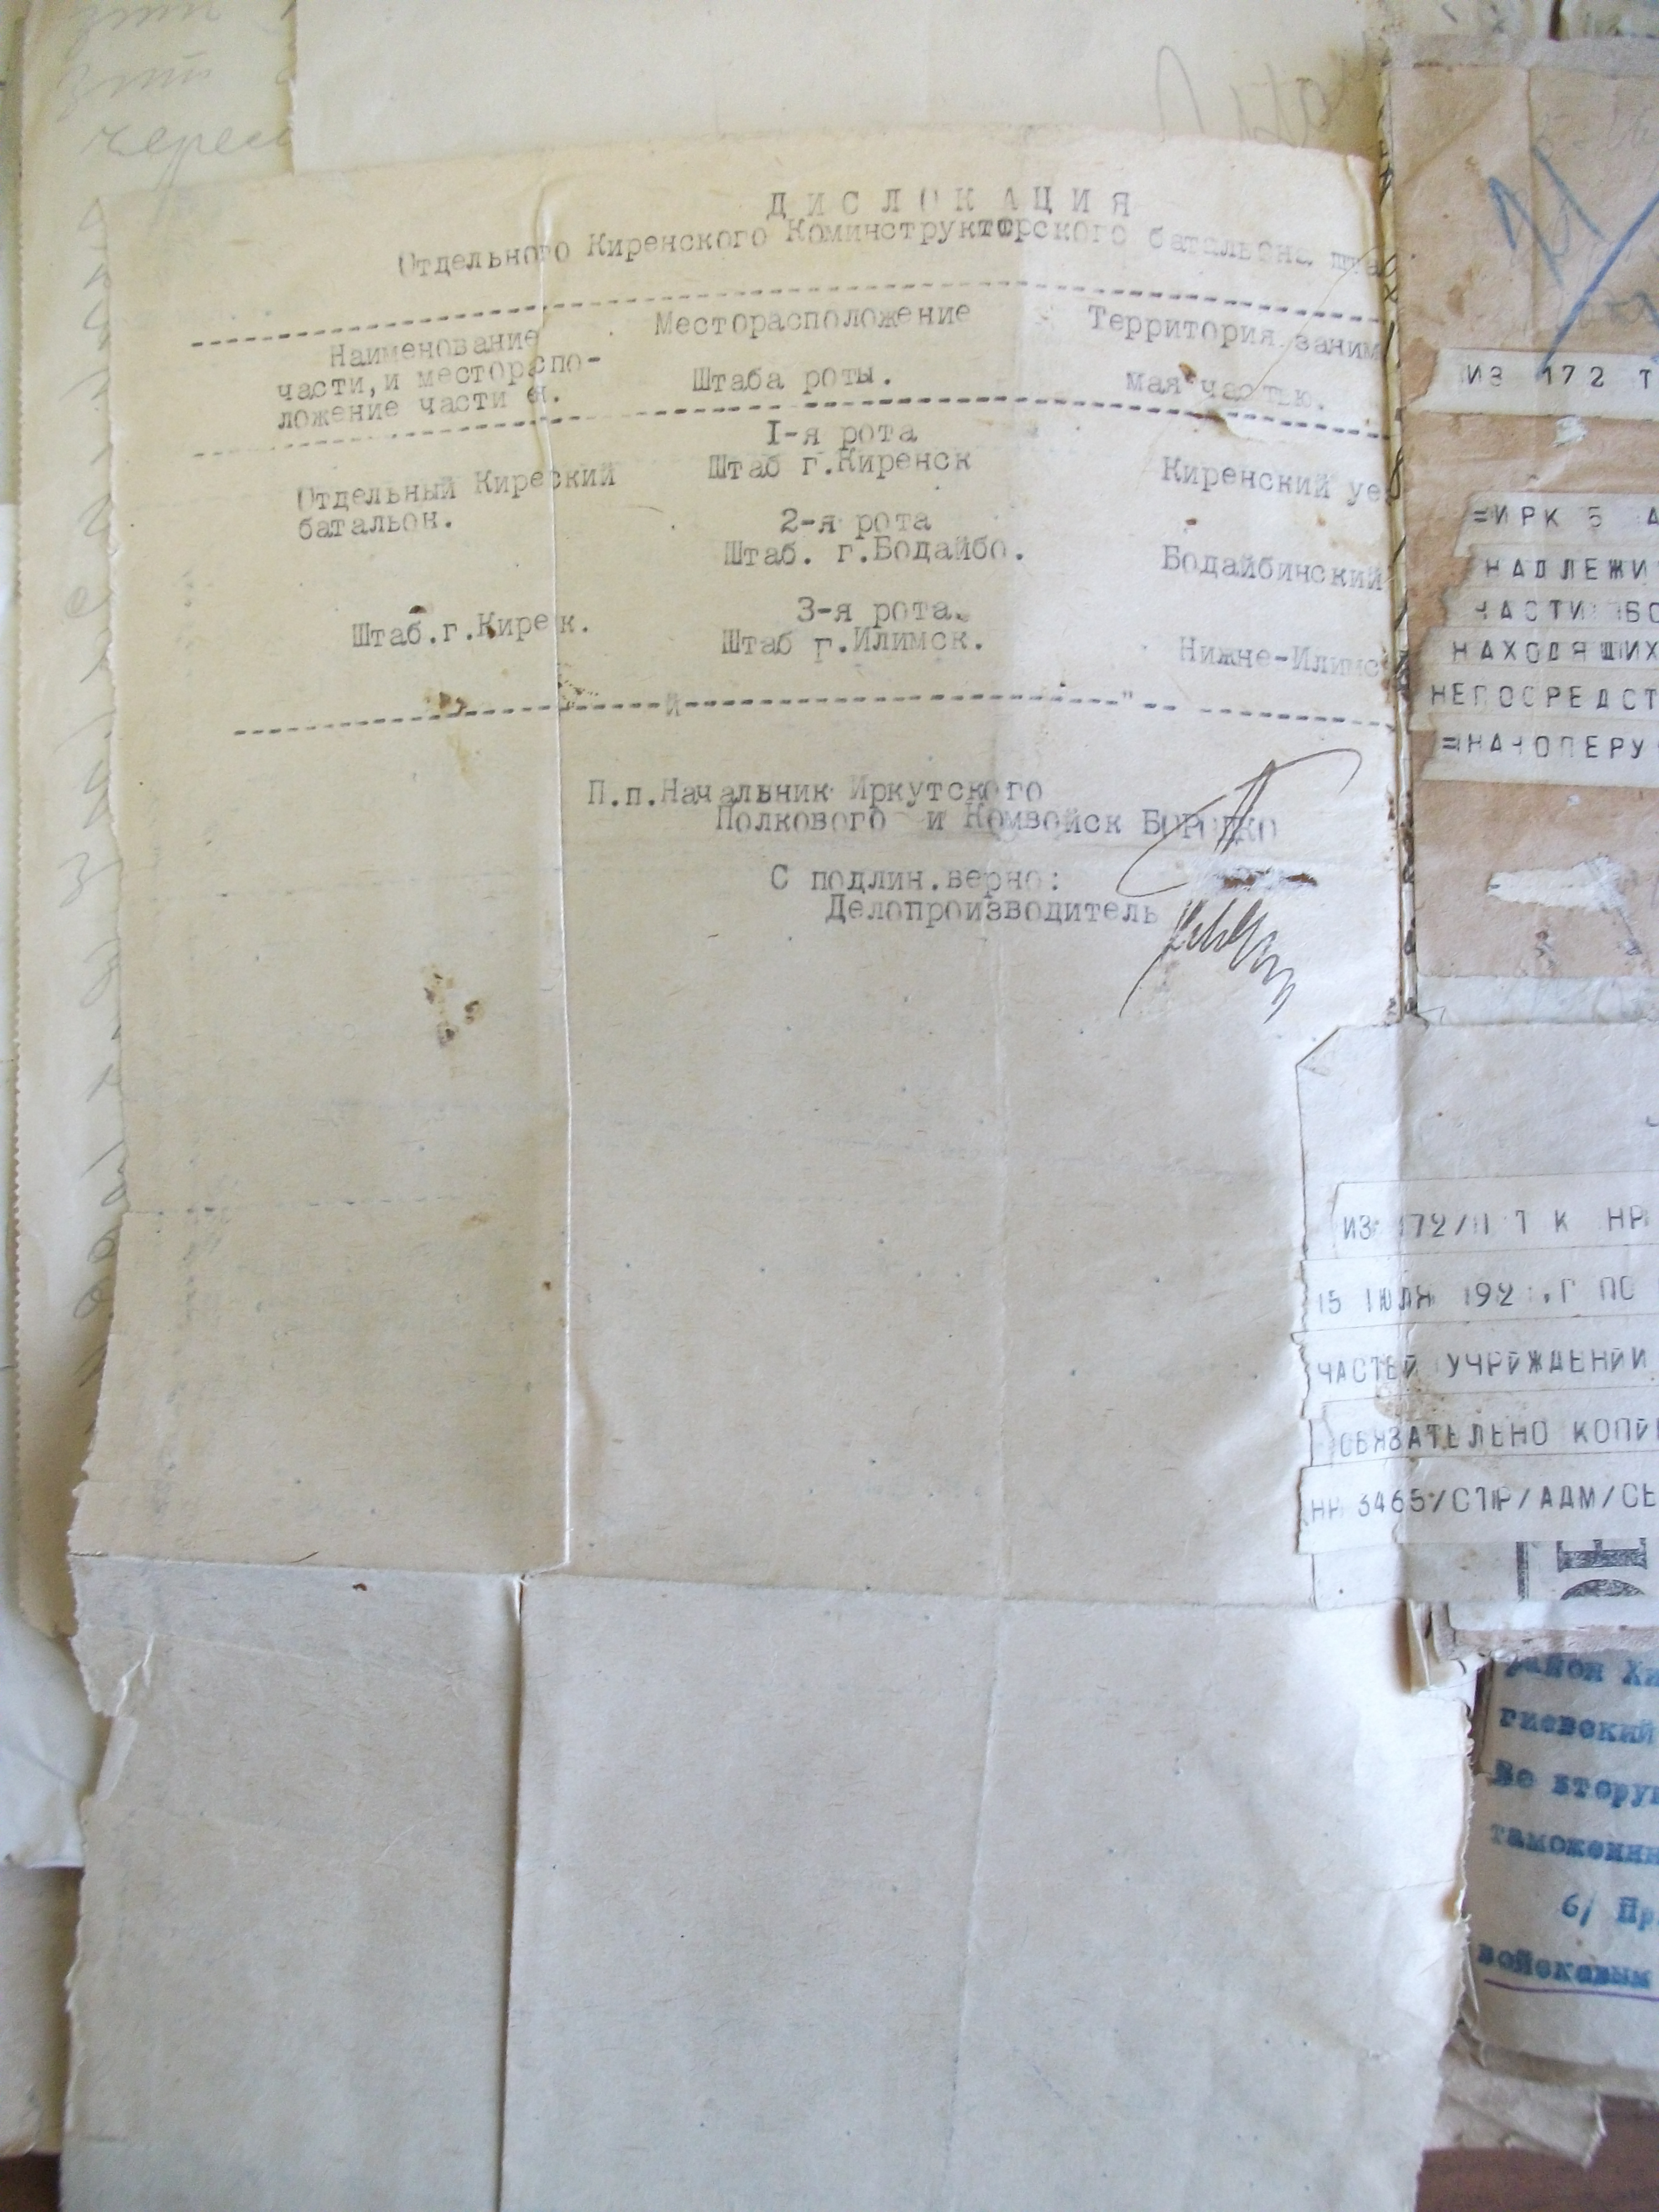 ДИСЛОКАЦИЯ
Отдельного Киренского Коминструкторского батальона шта
Наименование части, и месторспо-
ложение части ея.
Месторасположение
Штаба роты.
Территория заним
мая частью.
Отдельный Киреский
батальон.
Штаб.г.Кирек.
1-я рота
Штаб г.Киренск
2-я рота
Штаб. г.Бодайбо.
3-я рота.
Штаб г.Илимск.
Киренский уе
Бодайбинский
Нижне-Илимс
П.п.Начальник Иркутского
Полкового и Комвойск БОРОДКО
С подлин.верно:
Делопроизводитель
через
ИЗ 172 Т
=ИРК 5 А
НАДЛЕЖИ
ЧАСТИ БО
НАХОДЯЩИХ
НЕПОСРЕДСТ
=НАЧОПЕРУ
ИЗ 172/П Т К НР
15 ИЮЛЯ 192 .Г ПО
ЧАСТЕЙ УЧРИЖДЕНИИ
ОБЯЗАТЕЛЬНО КОПИ
НР 3465/СТР/АДМ/СЕ
район Хи
гиевский
Во вторую
таможенн
6/ Пр
войсковым